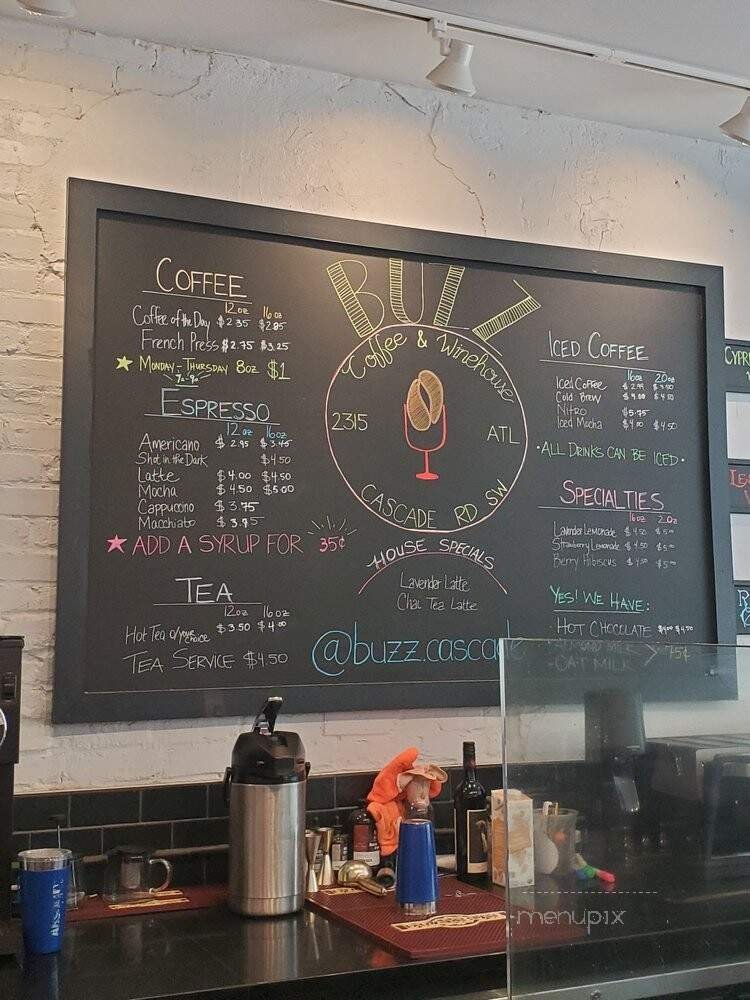 COFFEE
12 oz 16 oz
Coffee of the Day $2.35 $2.85
French Press $2.75 $3.25
MONDAY - THURSDAY 8oz $1
ESPRESSO
12 oz 16 oz
Americano $2.95 $3.45
Shot in the Dark $4.50
Latte $4.00 $4.50
Mocha $4.50 $5.00
Cappuccino $3.75
Macchiato $3.75
ADD A SYRUP FOR 35¢
TEA
12oz 16oz
Hot Tea of your choice $3.50 $4.00
TEA SERVICE $4.50
BUZZ
Coffee & Winehouse
2315
ATL
CASCADE RD SW
HOUSE SPECIALS
Lavender Latte
Chai Tea Latte
@buzz.cascade
ICED COFFEE
16oz 20oz
Iced Coffee
Cold Brew $4.00 $4.50
Nitro $5.75
Iced Mocha $4.00 $4.50
• ALL DRINKS CAN BE ICED •
SPECIALTIES
16oz 20z
Lavender Lemonade $4.50 $5.00
Strawberry Lemonade $4.50 $5.00
Berry Hibiscus $4.50 $5.00
YES! WE HAVE:
- HOT CHOCOLATE $4.00 $4.50
- ALMOND MILK
- OAT MILK
75¢
CYPR
menupix